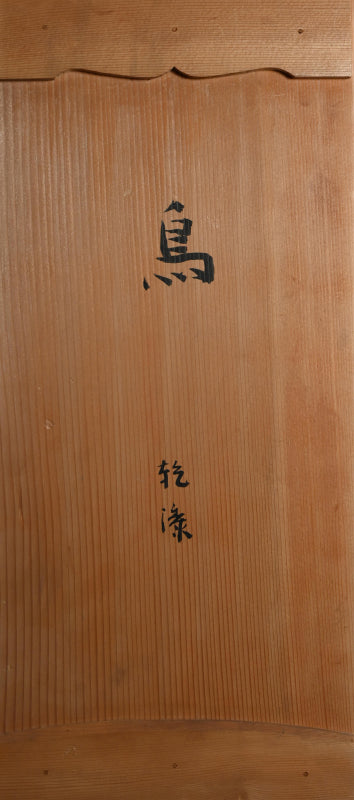 鳥
乾漆